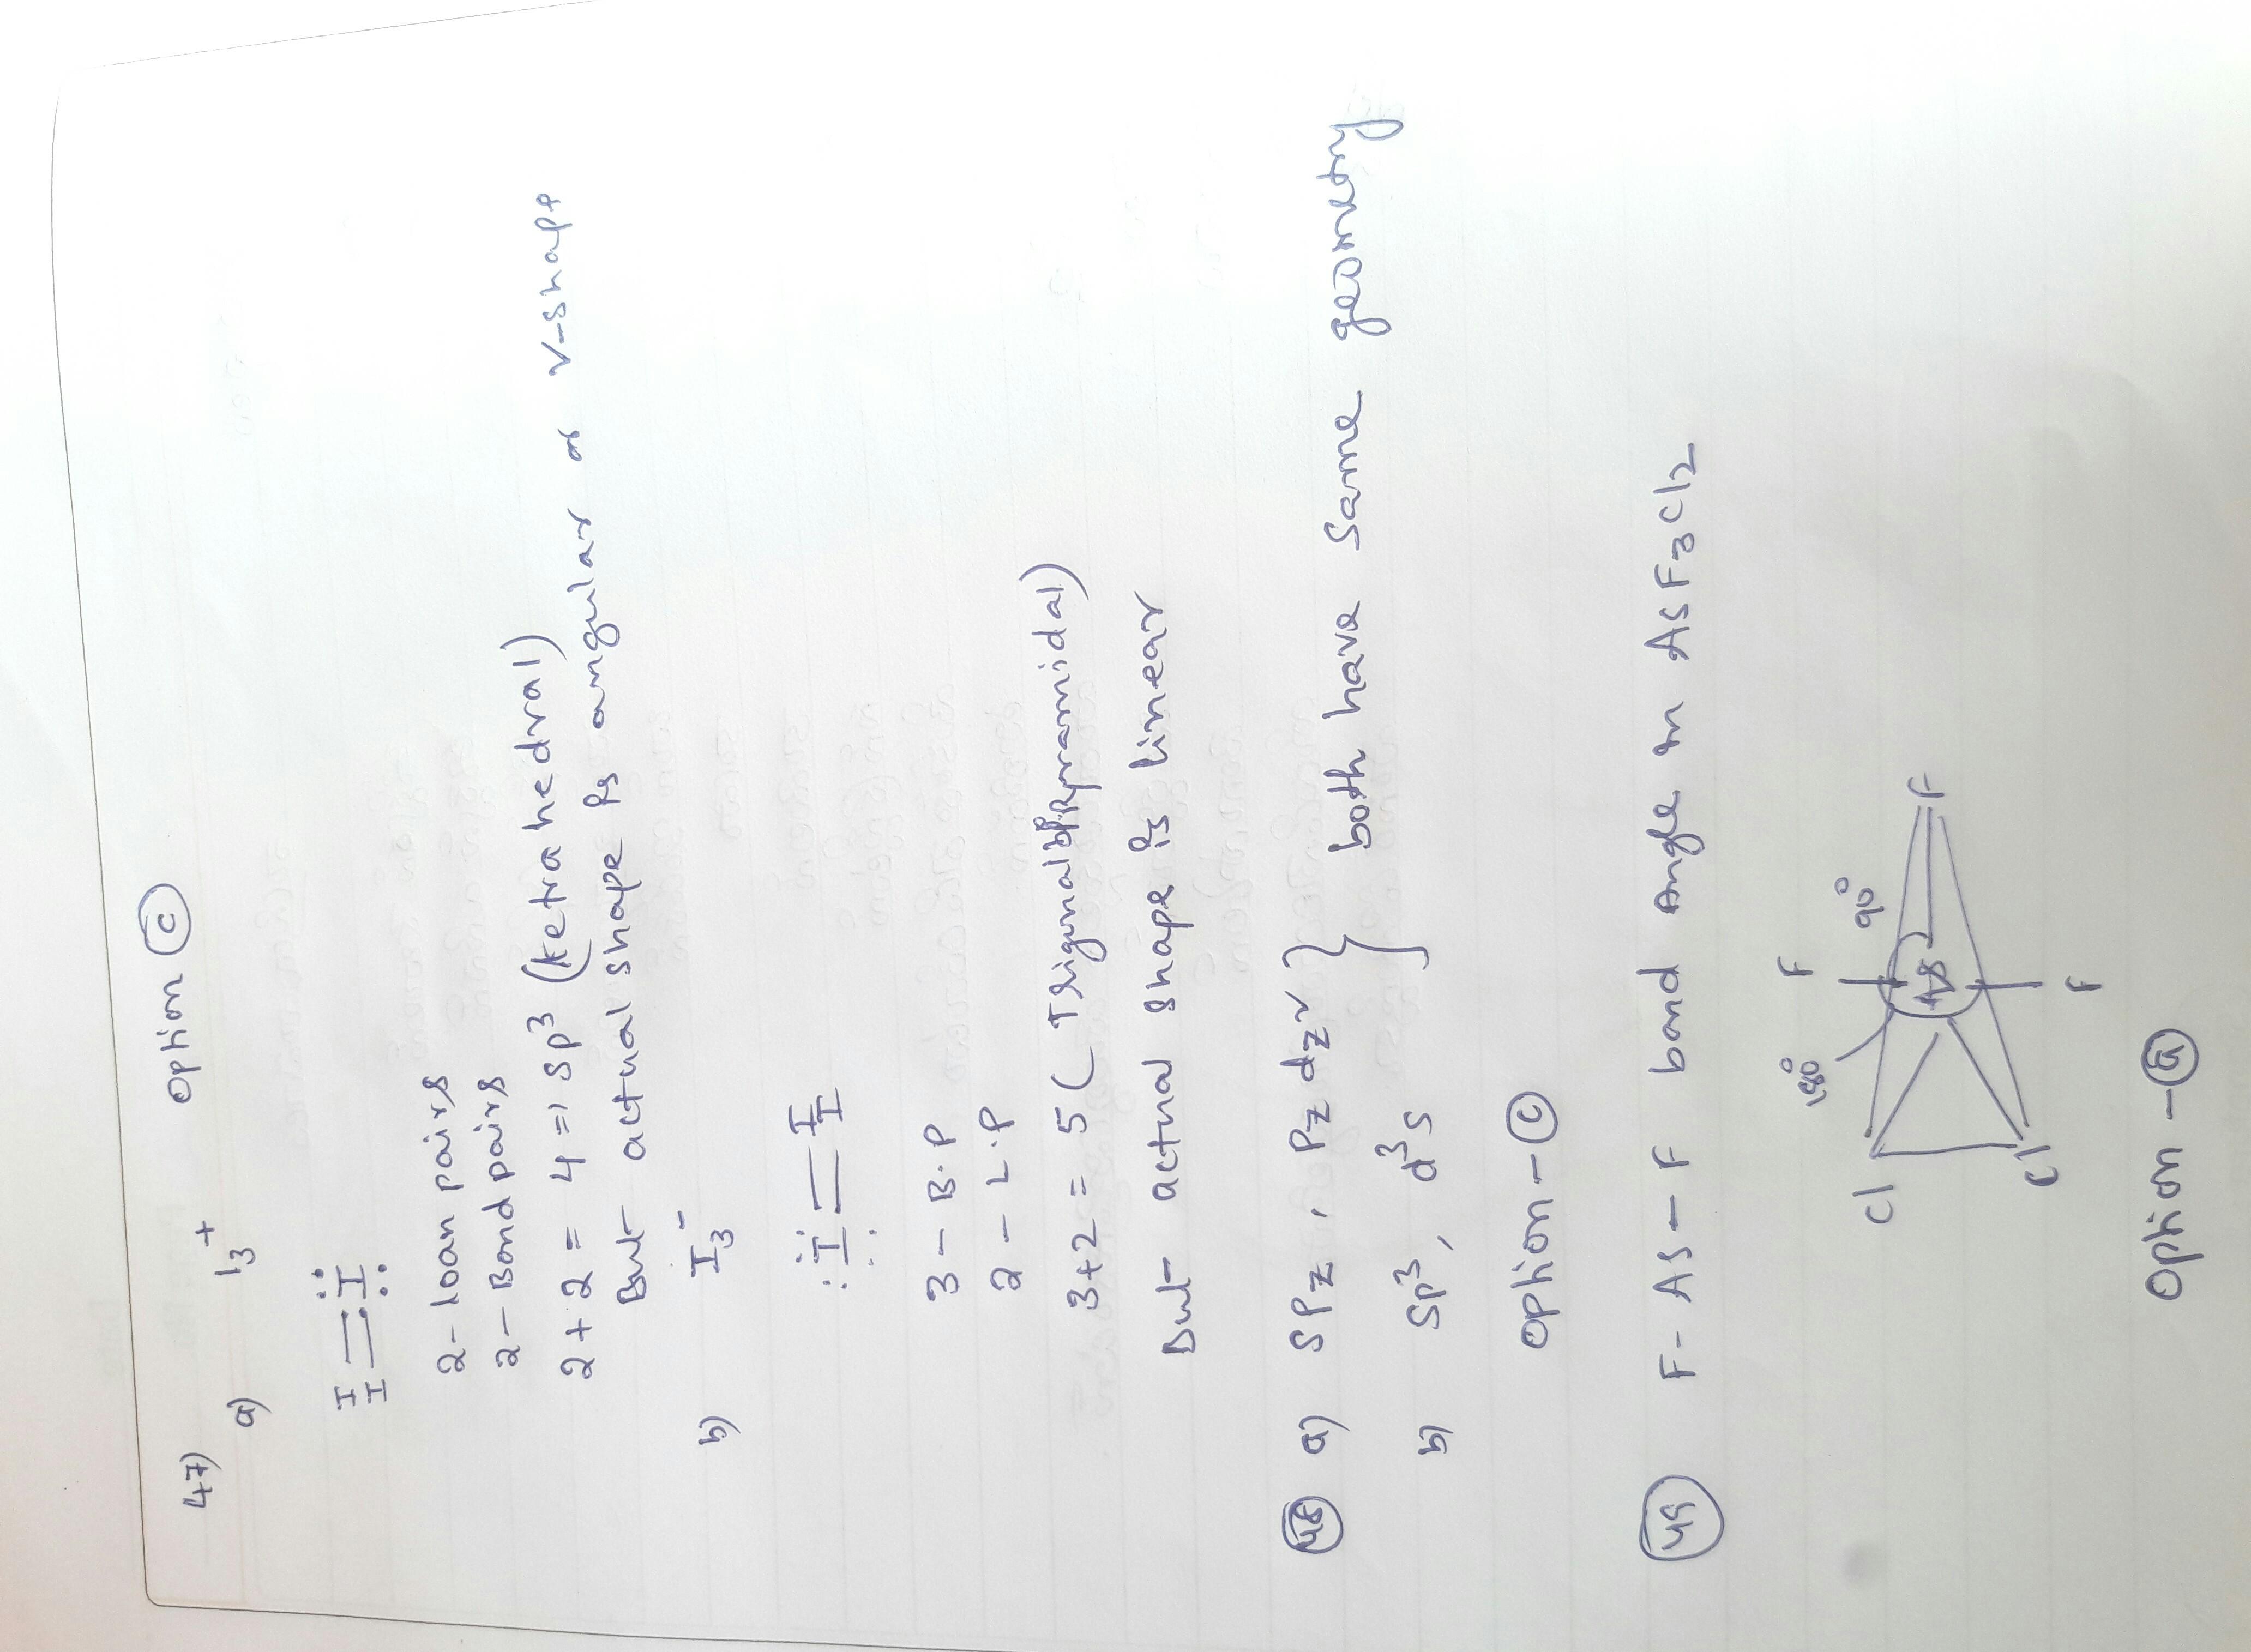 47) Option (c)
a) I3+
I
I I
2 - loan pairs
2 - Bond pairs
2 + 2 = 4 => sp3 (tetrahedral)
But actual shape is angular or V-shape
b) I3-
I I
3 - B.P
2 - L.P
3+2 = 5 (Trigonal bipyramidal)
But actual shape is linear
48 a) SPz, Pz dz2 } both have same geometry
b) SP3, d3s
Option - (c)
49 F - AS - F bond Angle in ASF3Cl2
F 90°
180°
Cl AS F
Cl F
Option - (a)